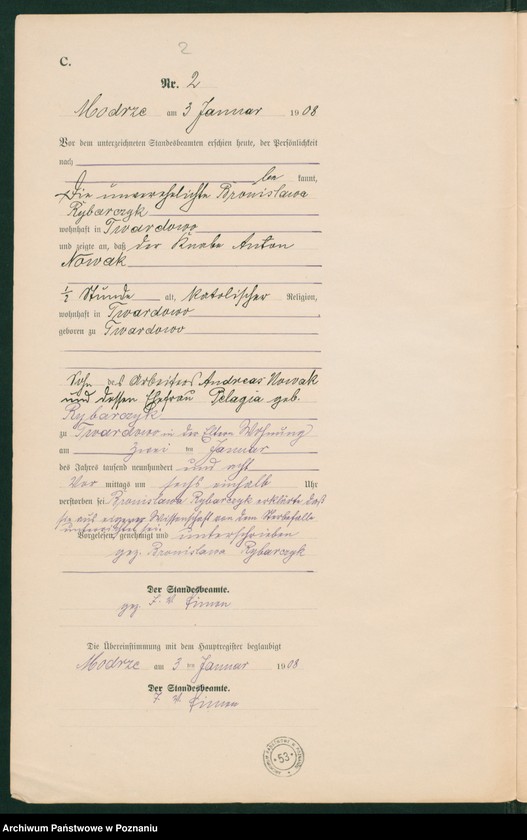 2
C.
Nr. 2
Modrze am 3 Januar 1908
Vor dem unterzeichneten Standesbeamten erschien heute, der Persönlichkeit
nach
be kannt,
Die unverehelichte Bronislawa
Rybarczyk
wohnhaft in Twardowo
und zeigte an, daß der Knabe Anton
Nowak
1/2 Stunde alt, katolischer Religion,
wohnhaft in Twardowo
geboren zu Twardowo
Sohn des Arbeiters Andreas Nowak
und dessen Ehefrau Pelagia geb.
Rybarczyk
zu Twardowo in der Eltern Wohnung
am zwei ten Januar
des Jahres tausend neunhundert und acht
Vor mittags um sechs einhalb Uhr
verstorben sei Bronislawa Rybarczyk erklärte daß
sie aus eigener Wissenschaft von dem Sterbefalle
unterrichtet sei
Vorgelesen, genehmigt und unterschrieben
gez. Bronislawa Rybarczyk
Der Standesbeamte.
gez.
Die Übereinstimmung mit dem Hauptregister beglaubigt
Modrze am 3 ten Januar 1908
Der Standesbeamte.
53
Archiwum Państwowe w Poznaniu